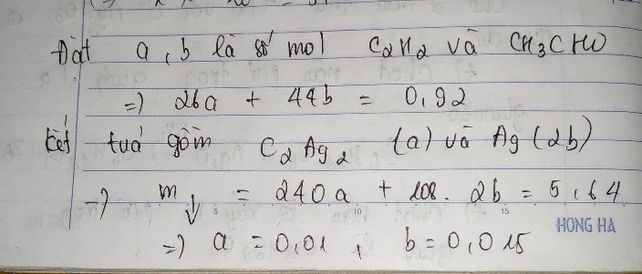 Đặt a, b là số mol C2H2 và CH3CHO
=) 26a + 44b = 0,92
kết tuả gồm C2Ag2 (a) và Ag (2b)
-) m↓ = 240.a + 108. 2b = 5,64
5 10 15
HONG HA
=) a = 0,01 , b = 0,015